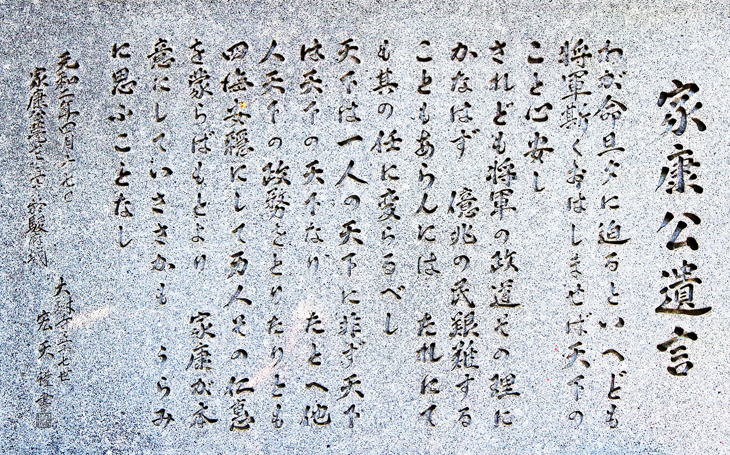 家康公遺言
わが命旦夕に迫るといへども
将軍斯くおはしませば天下の
こと心安し
されども将軍の政道その理に
かなはず 億兆の民艱難する
こともあらんには たれにて
も其の任に変らるべし
天下は一人の天下に非ず天下
は天下の天下なり たとへ他
人天下の政務をとりたりとも
四海安穏にして万人その仁恵
を蒙らばもとより 家康が本
意にしていささかも うらみ
に思ふことなし
元和二年四月十七日
家康公
大樹寺